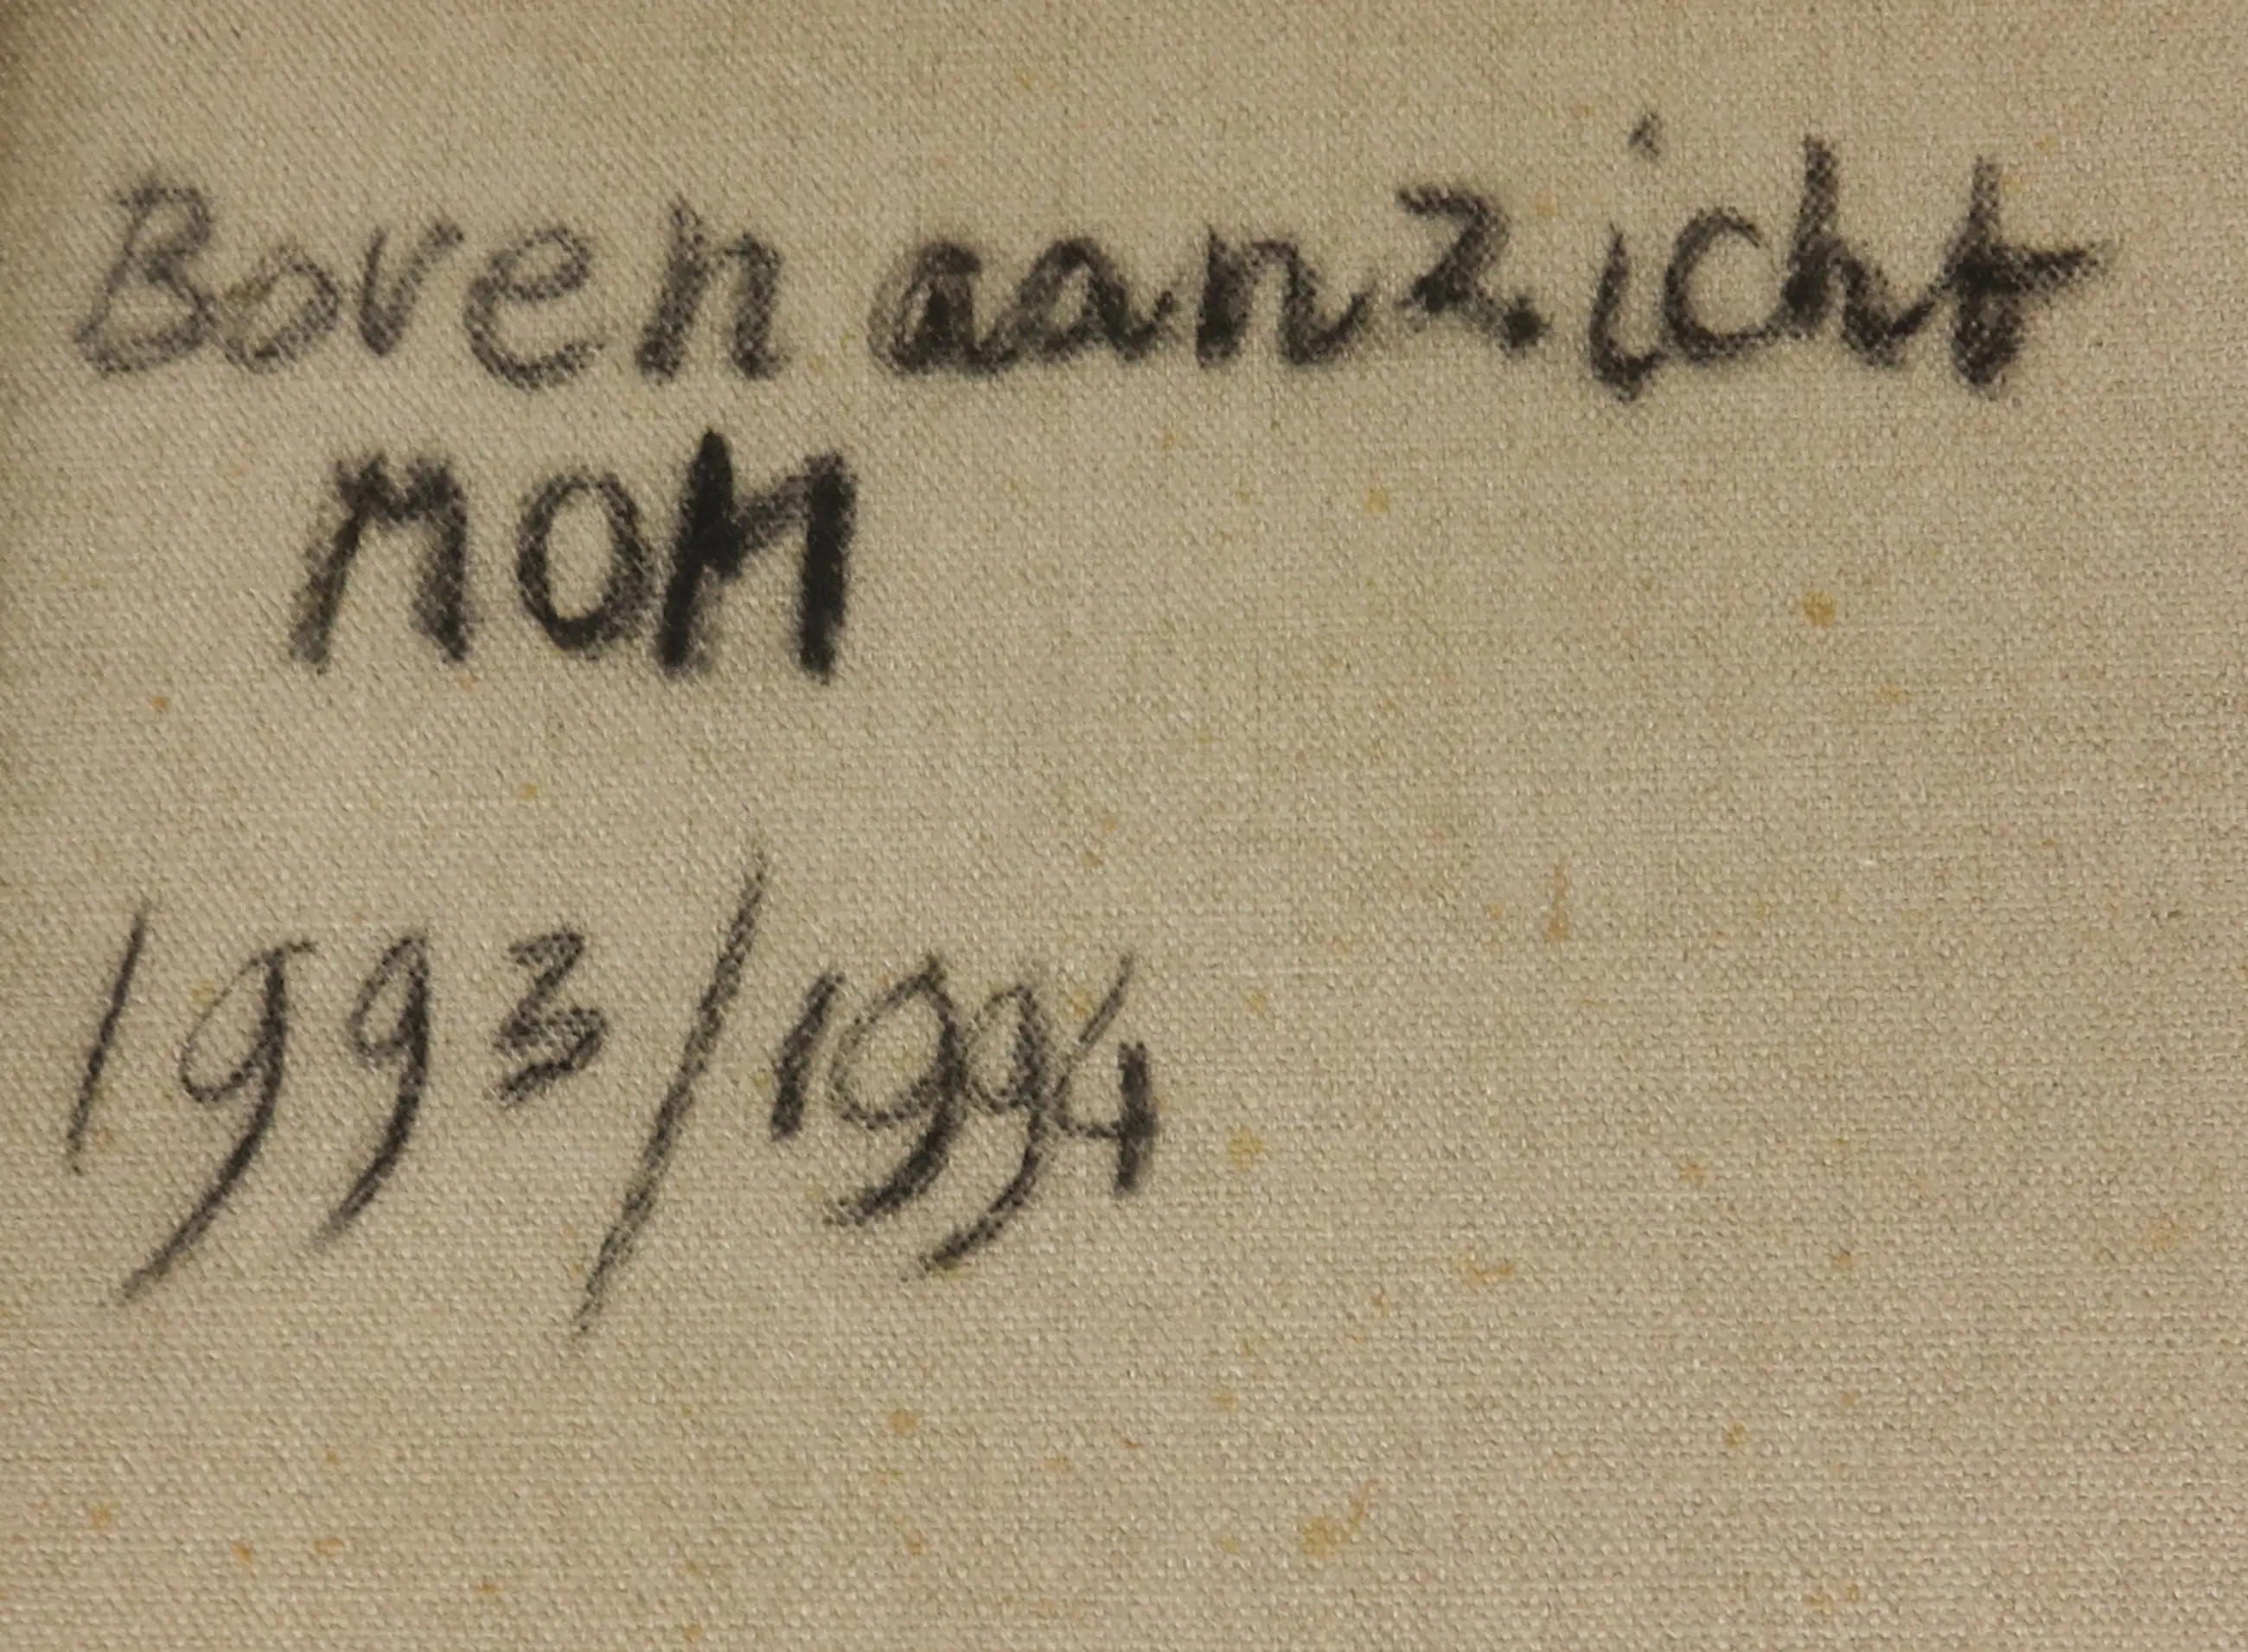 Boven aanzicht
MOM
1993/1994